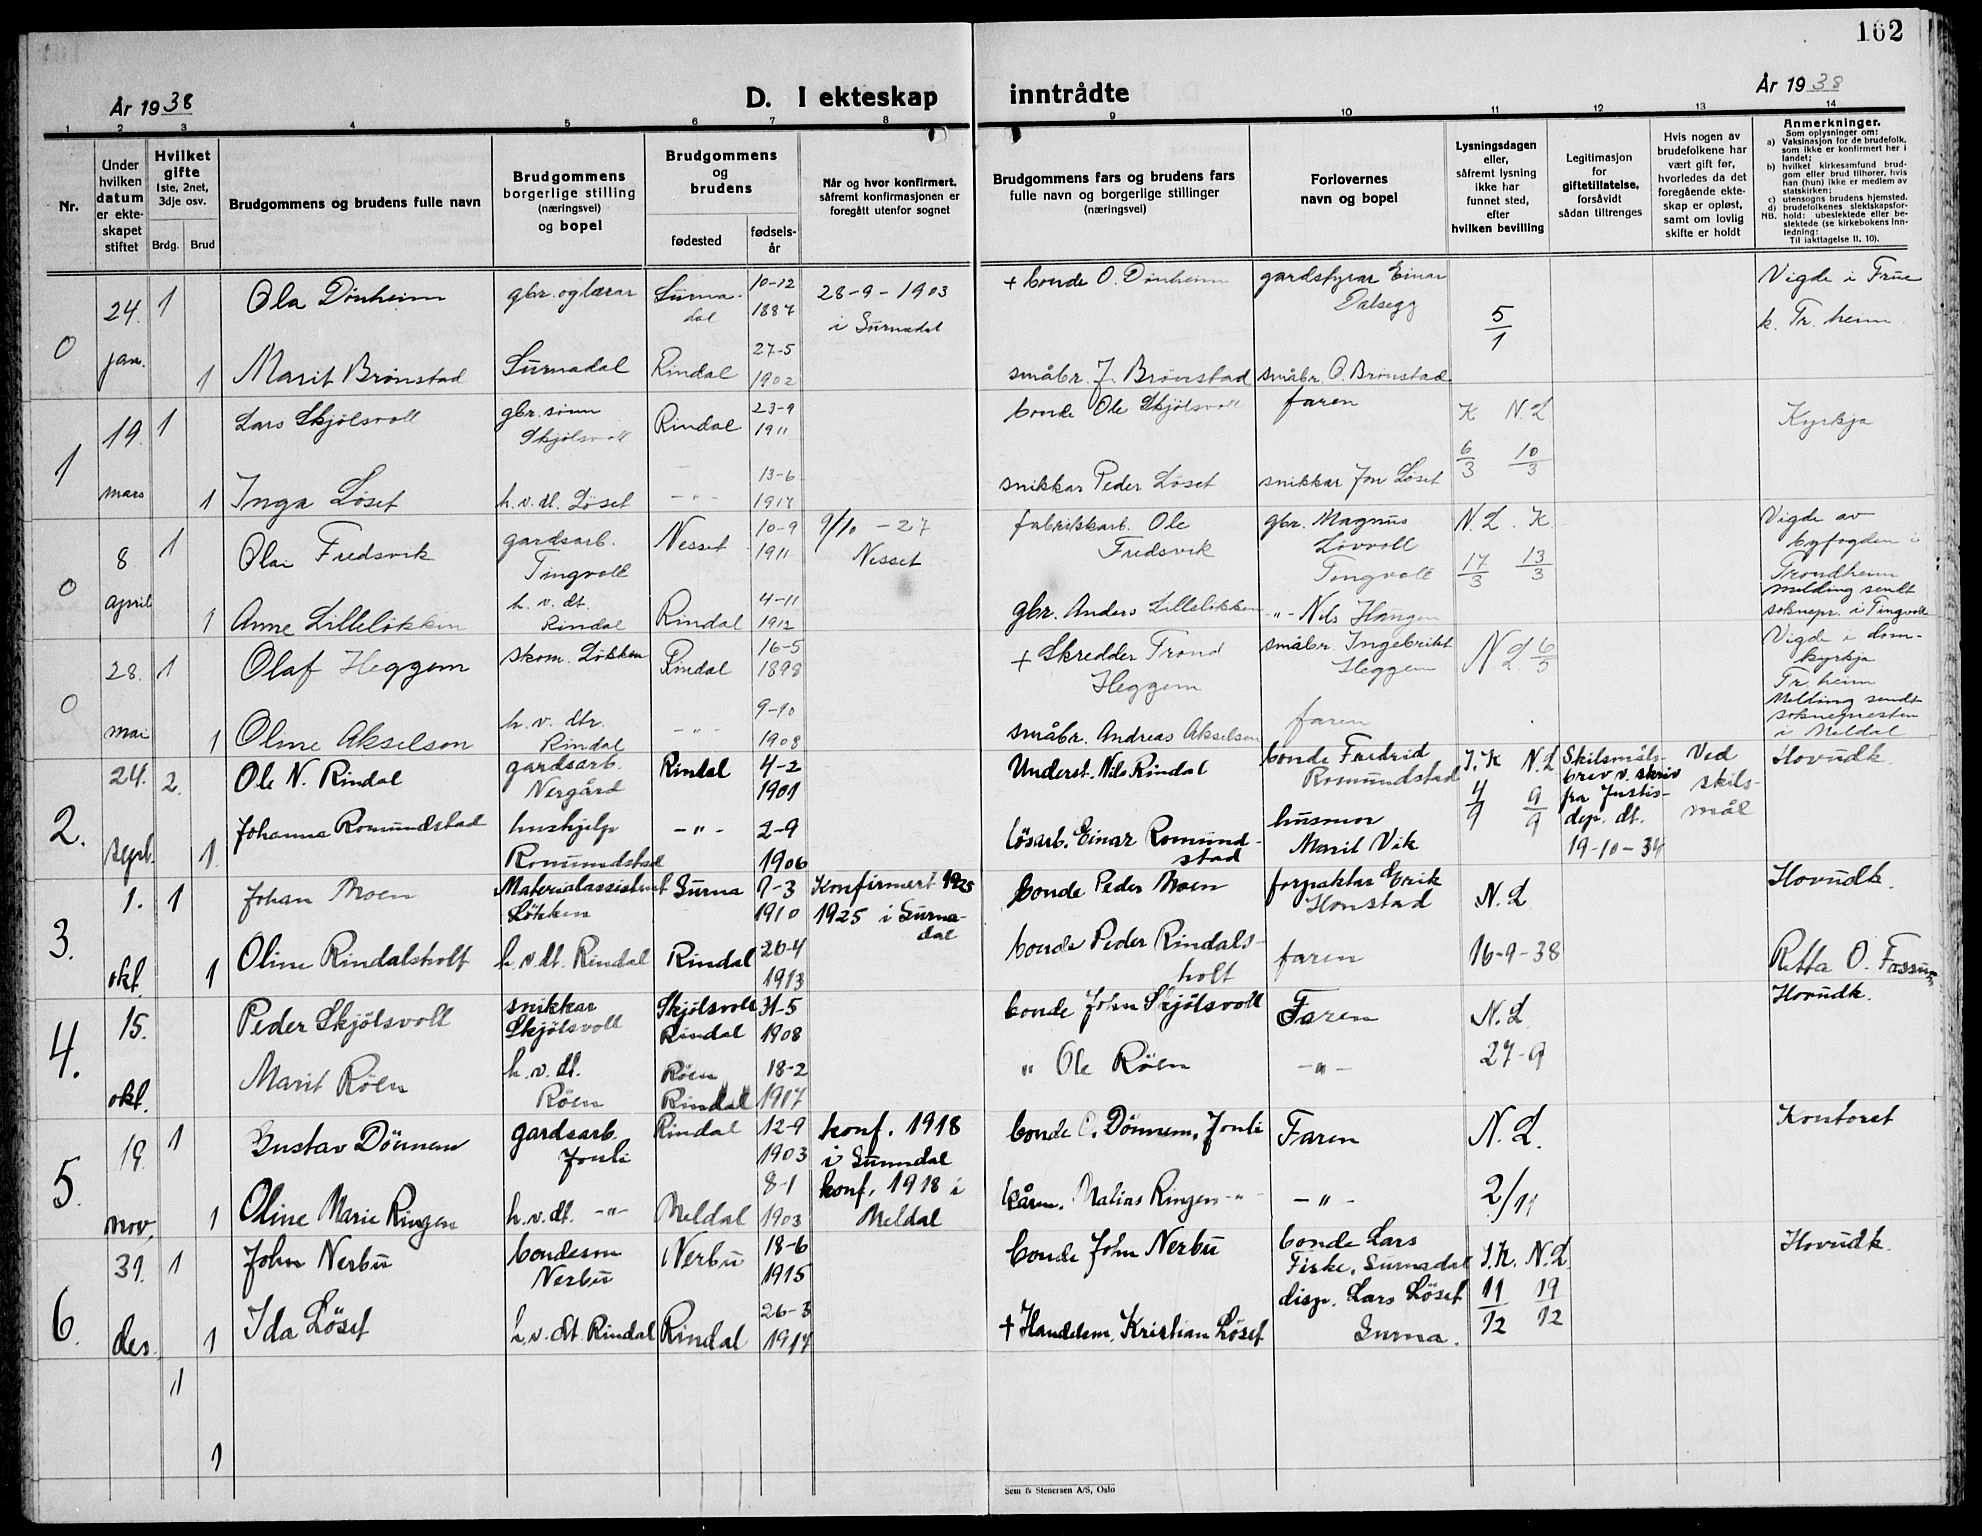 162
År 1938
D. I ekteskap inntrådte
År 1938
1 2 3 4 5 6 7 8 9 10 11 12 13 14
Nr.
Under hvilken datum er ekteskapet stiftet
Hvilket gifte 1ste, 2net, 3dje osv.
Brdg. Brud
Brudgommens og brudens fulle navn
Brudgommens borgerlige stilling (næringsvei) og bopel
Brudgommens og brudens
fødested
fødsels-år
Når og hvor konfirmert, såfremt konfirmasjonen er foregått utenfor sognet
Brudgommens fars og brudens fars fulle navn og borgerlige stillinger (næringsvei)
Forlovernes navn og bopel
Lysningsdagen eller, såfremt lysning ikke har funnet sted, efter hvilken bevilling
Legitimasjon for giftetillatelse, forsåvidt sådan tiltrenges
Hvis nogen av brudefolkene har vært gift før, hvorledes da det foregående ekteskap er opløst, samt om lovlig skifte er holdt
Anmerkninger.
Som oplysninger om:
a) Vaksinasjon for de brudefolk, som ikke er konfirmert her i landet;
b) hvilket kirkesamfund brudgom eller brud tilhører, hvis han (hun) ikke er medlem av statskirken;
c) utensogns brudens hjemsted.
d) brudefolkenes slektskapsforhold: ubeslektede eller beslektede (se kirkebokens innledning:
NB. Til iakttagelse II. 10).
0 24. jan. 1 Ola Dønheim gbr. og lærar Surnadal 10-12 1887 28-9-1903 i Surnadal + bonde O. Dønheim gardstyrar Einar Dalsegg 5/1 Vigde i Frue k. Tr. heim
1 Marit Brønstad Surnadal Rindal 27-5 1902 småbr. J. Brønstad småbr. O. Brønstad
1 19. mars 1 Lars Skjølsvoll gbr. sønn Skjølsvoll Rindal 23-9 1911 bonde Ole Skjølsvoll faren K 6/3 N.L 10/3 Kyrkja
1 Inga Løset h.v.dt. Løset -"- 13-6 1917 snikkar Peder Løset snikkar Jon Løset
0 8 april 1 Olai Fredsvik gardsarb. Tingvoll Nesset 10-9 1911 9/10 - 27 Nesset fabrikkarb. Ole Fredsvik gbr. Magnus Løvvoll Tingvoll N.L. 17/3 K 13/3 Vigde av byfogden i Trondheim melding sendt soknepr. i Tingvoll
1 Anne Lilleløkken h.v.dt. Rindal Rindal 4-11 1912 gbr. Anders Lilleløkken -"- Nils Haugen
0 28. mai 1 Olaf Heggem skom. Løkken Rindal 16-5 1898 + Skredder Trond Heggem småbr. Ingebrikt Heggem N L 6/5 Vigde i domkyrkja Tr. heim Melding sendt soknepresten i Meldal
1 Oline Akselson h.v. dtr. Rindal -"- 9-10 1908 småbr. Andreas Akselsen faren
2. 24. sept. 2. Ole N. Rindal gardsarb. Nergård Rindal 4-2 1901 Underst. Nils Rindal bonde Fredrid Romundstad J.K 4/9 N.L 9/9 Skilsmålsbrev v. skriv fra Justisdep. dt. 19-10-34 Ved skilsmål Hovudk.
1. Johanna Romundstad hushjelp Romundstad -"- 2-9 1906 løsarb. Einar Romundstad husmor Marit Vik
3. 1. okt. 1 Johan Moen Materialassistent Løkken Surna 9-3 1910 Konfirmert 1925 1925 i Surnadal bonde Peder Moen forpaktar Erik Honstad N.L 16-9-38 Hovudk.
1 Oline Rindalsholt h.v.dt. Rindal Rindal 26-4 1913 bonde Peder Rindalsholt faren Retta O. Fossum
4. 15. okt. Peder Skjølsvoll snikkar Skjølsvoll Skjølsvoll Rindal 31-5 1908 bonde John Skjølsvoll Faren N.L 27-9 Hovudk.
Marit Röen h.v.dt. Röen Röen Rindal 18-2 1917 " Ole Röen -"-
5. 19. nov. 1 Gustav Dönnem gardsarb. Jonli Rindal 12-9 1903 konf. 1918 i Sunndal bonde O. Dönnem, Jonli Faren N.L. 2/11 Kontoret
1 Oline Marie Ringen h.v.dt. -"- Meldal 8-1 1903 konf. 1918 i Meldal kårm. Malias Ringen -"- -"-
6. 31. des. 1 John Nerbu bondesøn Nerbu Nerbu 18-6 1915 bonde John Nerbu bonde Lars Fiske, Surnadal J.K. 11/12 N.L. 19/12 Hovudk.
1 Ida Löset h.v.dt. Rindal Rindal 26-3 1917 + Handelsm. Kristian Löset disp. Lars Löset Surna.
1
1
Sem & Stenersen A/S, Oslo